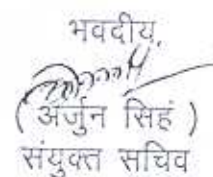 भवदीय,
( अर्जुन सिहं )
संयुक्त सचिव